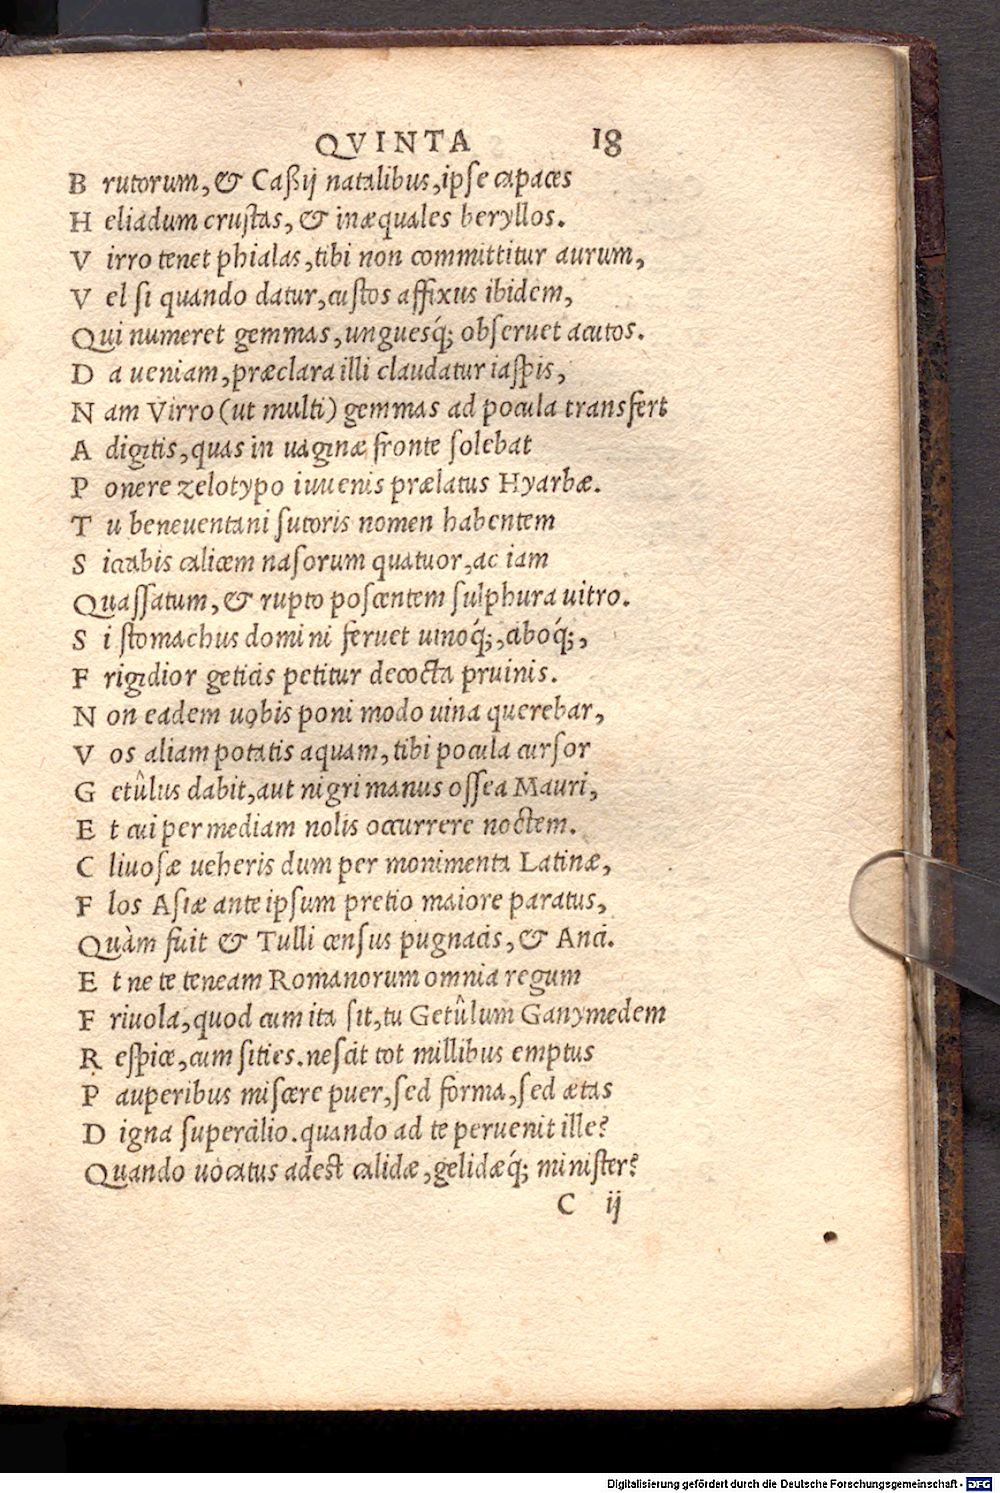 QVINTA 18
B rutorum, & Caßij natalibus, ipſe capaces
H eliadum cruſtas, & inæquales beryllos.
V irro tenet phialas, tibi non committitur aurum,
V el ſi quando datur, cuſtos affixus ibidem,
Qui numeret gemmas, ungueſq́; obſeruet acutos.
D a ueniam, præclara illi claudatur iaſpis,
N am Virro (ut multi) gemmas ad pocula transfert
A digitis, quas in uaginæ fronte ſolebat
P onere zelotypo iuuenis prælatus Hyarbæ.
T u beneuentani ſutoris nomen habentem
S iccabis calicem naſorum quatuor, ac iam
Quaſſatum, & rupto poſcentem ſulphura uitro.
S i ſtomachus domini feruet uinoq́;, ciboq́;,
F rigidior geticis petitur decocta pruinis.
N on eadem uobis poni modo uina querebar,
V os aliam potatis aquam, tibi pocula curſor
G etûlus dabit, aut nigri manus oſſea Mauri,
E t cui per mediam nolis occurrere noctem.
C liuoſæ ueheris dum per monimenta Latinæ,
F los Aſiæ ante ipſum pretio maiore paratus,
Quàm fuit & Tulli cenſus pugnacis, & Anci.
E t ne te teneam Romanorum omnia regum
F riuola, quod cum ita ſit, tu Getûlum Ganymedem
R eſpice, cum ſities. neſcit tot millibus emptus
P auperibus miſcere puer, ſed forma, ſed ætas
D igna ſupercilio. quando ad te peruenit ille?
Quando uocatus adeſt calidæ, gelidæq́; miniſter?
C ij
Digitalisierung gefördert durch die Deutsche Forschungsgemeinschaft - DFG